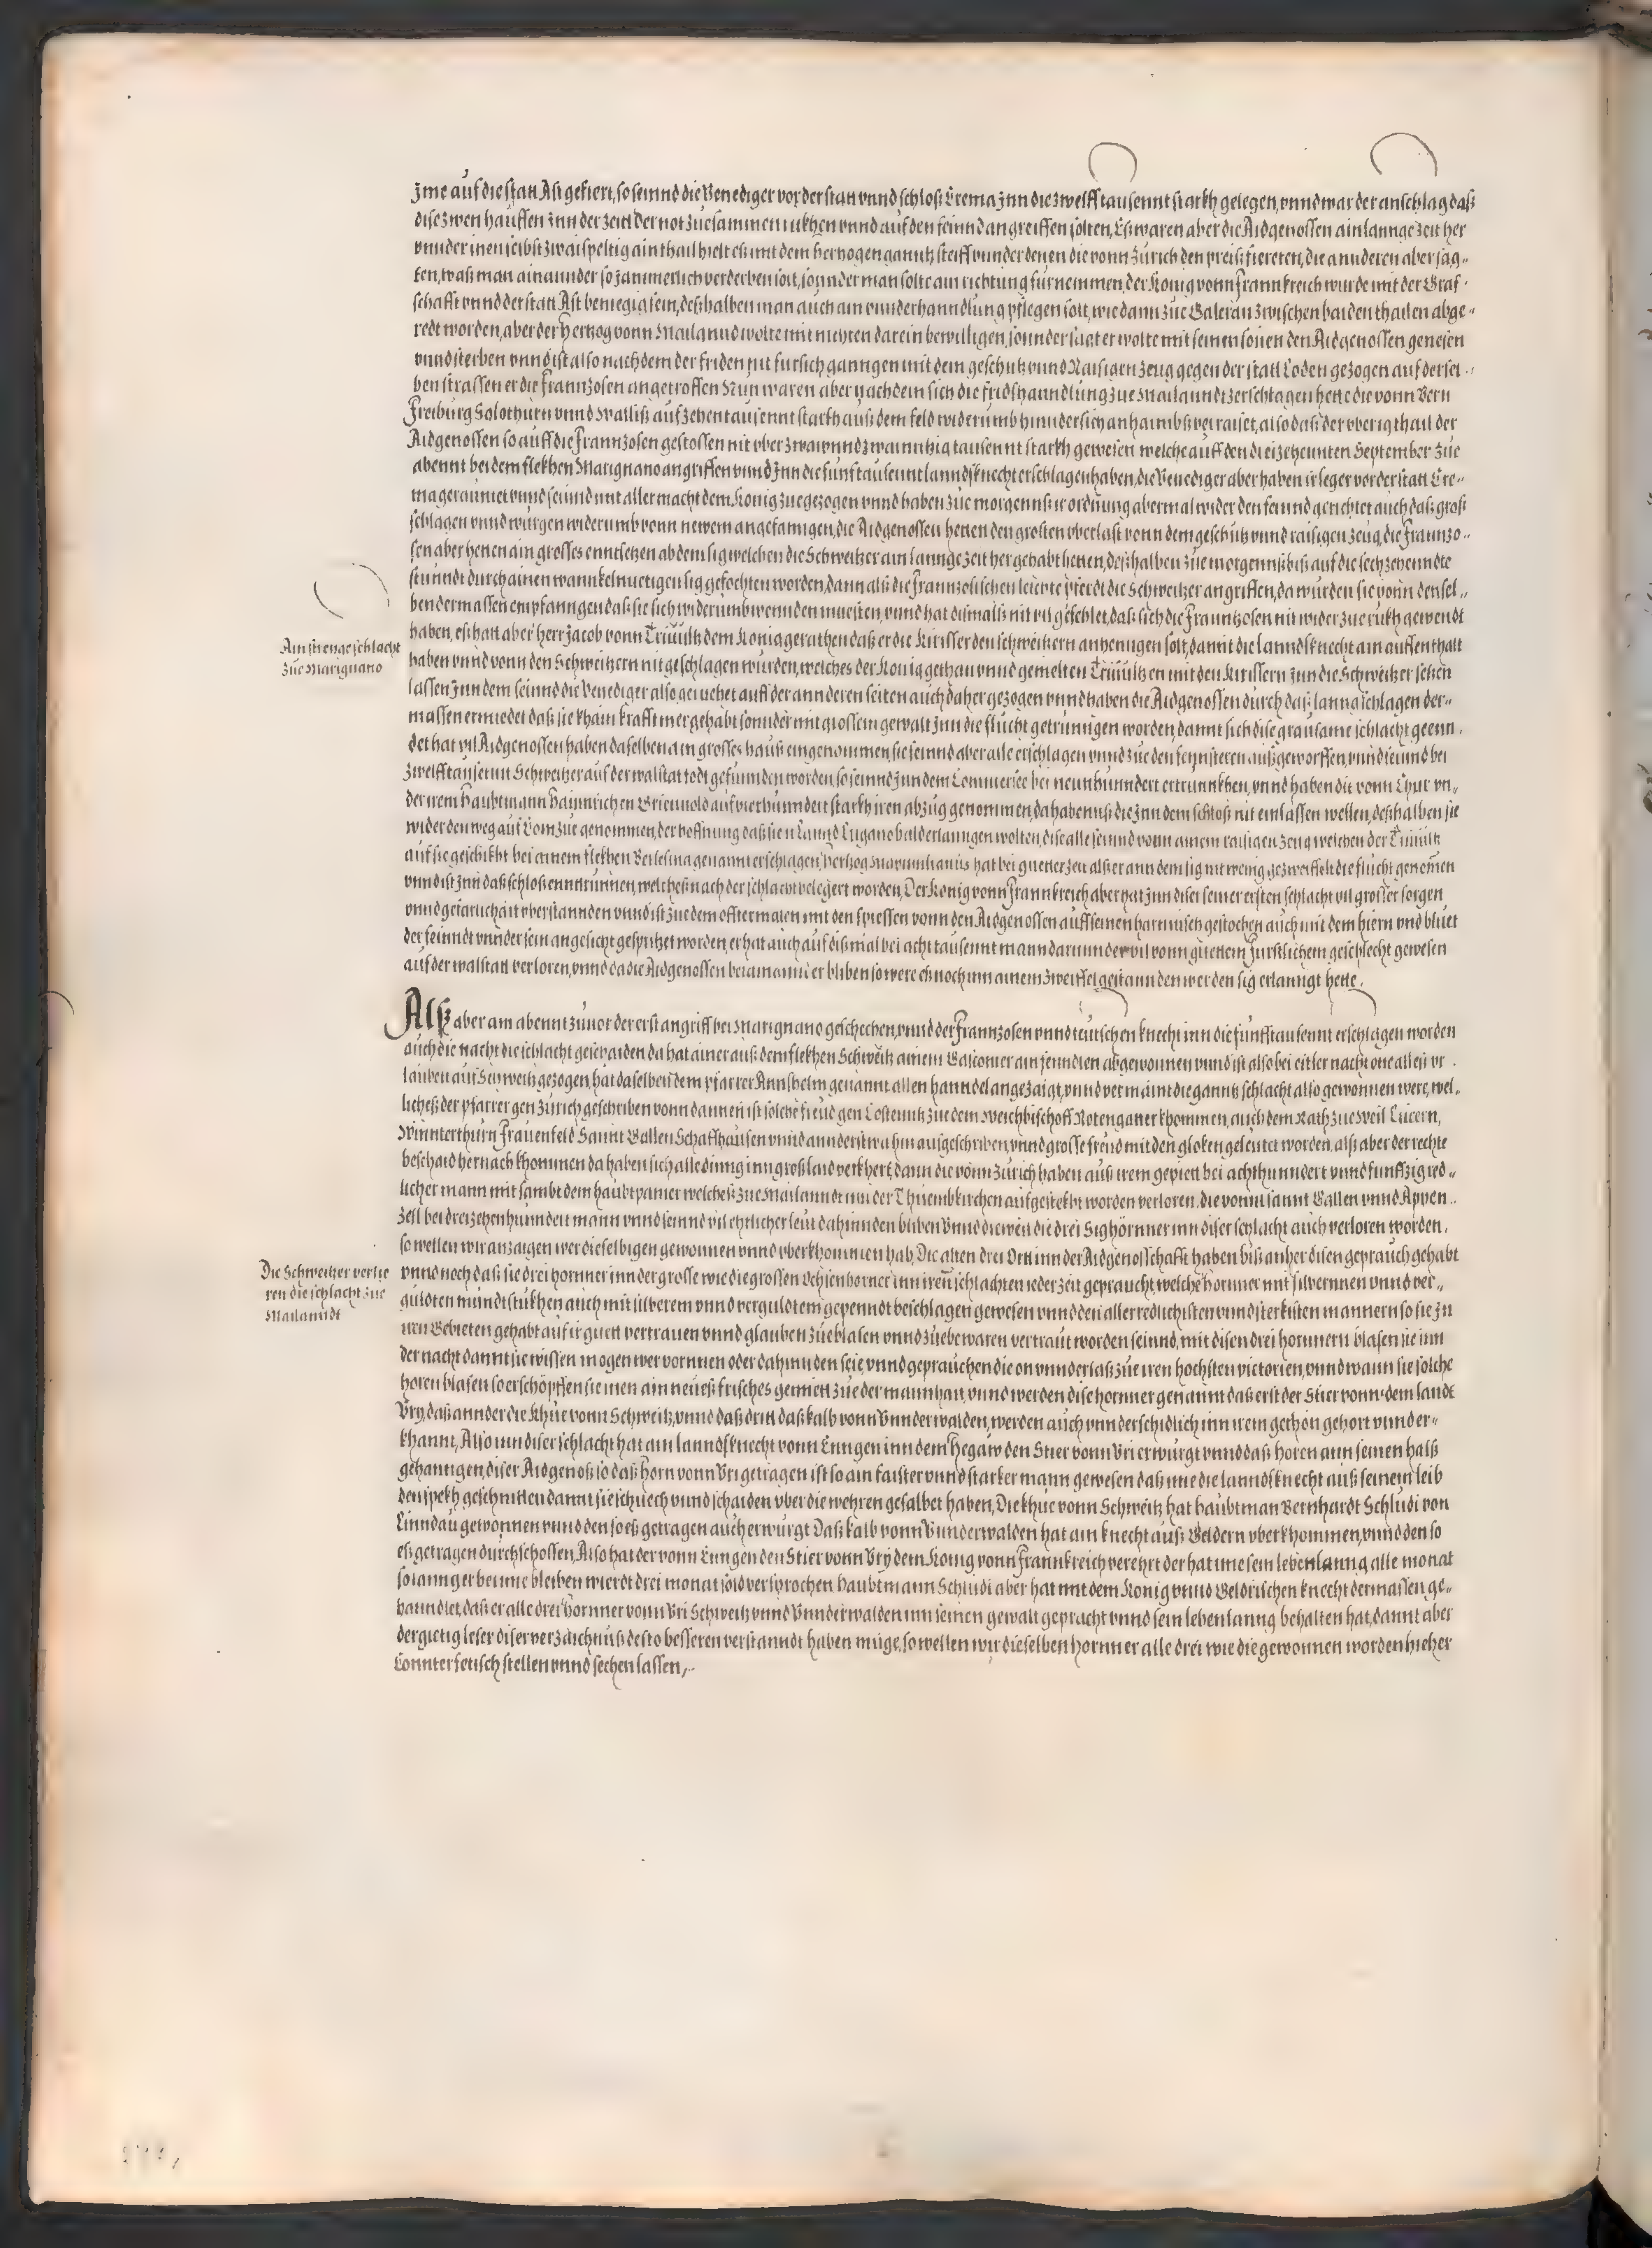 Jme auf die statt Ast gefiert, so seinnd die Venediger vor der statt vnnd schloß Crema jnn die zwelfftausennt starkh gelegen, vnnd war der anschlag daß
dise zwen hauffen jnn der zeit der not zuesammen rukhen vnnd auf den feinnd angreiffen solten, Eß waren aber die Aidgenossen ain lannge zeit her
vnnder inen selbst zwaispeltig ain thail hielt eß mit dem hertzogen ganntz steiff vnnder denen die vonn Zürich den preiß fiereten, die annderen aber sag-
ten, waß man ainannder so jammerlich verderben solt, sonnder man solte ain richtung fürnemmen, der König vonn Frannkreich wurde mit der Graf-
schafft vnnd der statt Ast beniegig sein, deßhalben man auch ain vnnderhanndlung pflegen solt, wie dann zue Galeran zwischen baiden thailen abge-
redt worden, aber der Hertzog vonn Mailannd wolte mit nichten darein bewilligen, sonnder sagt er wolte mit seinen sönen den Aidgenossen genesen
vnnd sterben vnnd ist also nach dem der friden nit fürsich ganngen mit dem geschütz vnnd Raisigen zeug gegen der statt Loden gezogen auf der sel-
ben strassen er die Frannzosen angetroffen Nun waren aber nach dem sich die fridßhanndlung zue Mailanndt zerschlagen hette die vonn Bern
Freiburg Solothurn vnnd Walliß auf zehentausennt starkh auß dem feld widerumb hinndersich anhaimbß verraiset, also daß der vberig theil der
Aidgenossen so auff die Frannzosen gestossen nit vber zwaivnndzwainntzig tausennt starkh gewesen welche auff den dreizehennten September zue
abennt bei dem flekhen Marignano angriffen vnnd jnn die fünftausennt lanndßknecht erschlagen haben, die Venediger aber haben ir leger vor der statt Cre-
ma geraumet vnnd seinnd mit aller macht dem König zuegezogen vnnd haben zue morgennß ir ordnung abermal wider den feinnd gerichtet auch daß groß
schlagen vnnd würgen widerumb vonn newem angefanngen, die Aidgenossen hetten den grosten vberlast vonn dem geschütz vnnd raisigen zeug, die Frannzo-
sen aber hetten ain grosses enntsetzen ab dem sig welchen die Schweitzer ain lannge zeit her gehabt hetten, deßhalben zue morgennß biß auf die sechzehenndte
stunndt durch ainen wannkelmuetigen sig gefochten worden, dann alß die frannzosischen leichte pferdt die Schweitzer angriffen, da wurden sie vonn densel-
ben dermassen empfanngen daß sie sich widerumb wennden muesten, vnnd hat dißmalß nit vil gefehlet, daß sich die Frauntzosen nit wider zue rukh gewendt
haben, eß hatt aber herr Jacob vonn Triuultz dem König gerathen daß er die Kirisser den schweitzern anhenngen solt, damit die lanndßknecht ain auffenthalt
haben vnnd vonn den Schweitzern nit geschlagen wurden, welches der König gethan vnnd gemelten Triuultzen mit den Kirissern jnn die Schweitzer setzen
lassen, Jnn dem seinnd die Venediger also geruehet auff der annderen seiten auch daher gezogen vnnd haben die Aidgenossen durch daß lanng schlagen der-
massen ermiedet daß sie khain krafft mer gehabt sonnder mit grossem gewalt jnn die flucht getrunngen worden, damit sich dise grausame schlacht geenn-
det hat, vil Aidgenossen haben daselben ain grosses hauß eingenommen, sie seinnd aber alle erschlagen vnnd zue den fennsteren außgeworffen, vnnd seinnd bei
zwelfftausennt Schweitzer auf der walstatt todt gefunnden worden, so seinnd jnn dem Commersee bei neunhunndert ertrunnkhen, vnnd haben die vonn Chur vn-
der irem Haubtmann Hainnrichen auf vierhunndert starkh iren abzug genommen, da haben sie die jnn dem schloß nit einlassen wellen, deßhalben sie
wider den weg auf Com zue genommen, der hoffnung daß sie n Lannd Lugano bald erlanngen wolten, dise alle seinnd vonn ainem raisigen zeug welchen der Triuultz
auf sie geschikht bei ainem flekhen genannt erschlagen, Hertzog Maximilianus hat bei gueter zeit alß er ann dem sig nit wenig gezweiffelt die flucht genommen
vnnd ist jnn daß schloß enntrunnen, welcheß nach der schlacht belegert worden, Der König vonn Frannkreich aber hat jnn diser seiner ersten schlacht vil grosser sorgen
vnnd gefarlichait vberstannden vnnd ist zue dem offtermalen mit den spiessen vonn den Aidgenossen auff seinen harnnisch gestochen auch mit dem hiern vnd bluet
der feinndt vnnder sein angesicht gesprützet worden, er hat auch auf dißmal bei acht tausennt mann darunnder vil vonn guetem Fürstlichem geschlecht gewesen
auf der walstatt verloren, vnnd da die Aidgenossen beiainannder bliben so were eß noch inn ainem zweiffel gestannden wer den sig erlanngt hette.
Ain strenge schlacht
zue Marignano
Alß aber am abennt zuuor der erst angriff bei Marignano geschechen, vnnd der Frannzosen vnnd teutschen knecht inn die fünfftausennt erschlagen worden
auch die nacht die schlacht geschaiden da hat ainer auß dem flekhen Schweitz ainem Gasconier ain fenndlen abgewonnen vnnd ist also bei eitler nacht one alleß vr-
lauben auf Schweitz gezogen, hat daselben dem pfarrer Annßhelm genannt allen hanndel angezaigt, vnnd vermaint die ganntz schlacht also gewonnen were, wel-
licheß der pfarrer gen Zürich geschriben vonn dannen ist solche freud gen Costenntz zue dem Weichbischoff khommen, auch dem Rath zue Weil Lucern,
Winnterthurn Frauenfeld Sannt Gallen Schaffhausen vnnd annderstwahin außgeschriben, vnnd grosse freud mit den gloken geleutet worden, alß aber der rechte
beschaid hernach khommen da haben sich alle dinng inn groß laid verkhert, dann die vonn Zürich haben auß irem gepiett bei achthunndert vnnd funffzig red-
licher mann mit sambt dem haubtpanier welcheß zue Mailanndt inn der Thuembkirchen aufgestekht worden verloren, die vonn sannt Gallen vnnd Appen-
zell bei dreizehenhunndert mann vnnd seinnd vil ehrlicher leut dahinnden bliben Vnnd dieweil die drei Sighörnner inn diser schlacht auch verloren worden,
so wellen wir anzaigen wer dieselbigen gewonnen vnnd vberkhommen hab, Die alten drei Ortt inn der Aidgenosschafft haben biß anher disen geprauch gehabt
vnnd noch daß sie drei hornner inn der grosse wie die grossen Ochsenhorner inn iren schlachten ieder zeit gepraucht, welche hornner mit silbernnen vnnd ver-
guldten mundtstukhen auch mit silberem vnnd verguldtem gepenndt beschlagen gewesen vnnd den allerredlichisten vnnd sterkisten mannern so sie jn
iren Gebieten gehabt auf ir guett vertrauen vnnd glauben zue blasen vnnd zue bewaren vertraut worden seinnd, mit disen drei hornnern blasen sie inn
der nacht damit sie wissen mogen wer vornnen oder dahinnden seie, vnnd geprauchen die on vnnderlaß zue iren hochsten victorien, vnnd wann sie solche
horen blasen so erschöpffen sie inen ain neueß frisches gemiett zue der mannhait, vnnd werden dise hornner genannt daß erst der Stier vonn dem lande
Vry, daß annder die Khue vonn Schweitz, vnnd daß dritt daß kalb vonn Vnnderwalden, werden auch vnnderschidlich inn irem gethön gehort vnnd er-
khannt, Also inn diser schlacht hat ain lanndßknecht vonn Enngen inn dem Hegaw den Stier vonn Vri erwurgt vnnd daß horen ann seinen halß
gehanngen, diser Aidgenoß so daß horn vonn Vri getragen ist so ain faister vnnd starker mann gewesen daß ime die lanndßknecht auß seinem leib
den spekh geschnitten damit sie schuech vnnd schaiden vber die wehren gesalbet haben, Die khue vonn Schweitz hat haubtman Bernhardt Schludi von
Linndau gewonnen vnnd den so eß getragen auch erwurgt Daß kalb vonn Vnnderwalden hat ain knecht auß Geldern vberkhommen, vnnd den so
eß getragen durchschossen, Also hat der vonn Enngen den Stier vonn Vry dem König vonn Frannkreich verehrt der hat ime sein lebenlanng alle monat
so lanng er bei ime bleiben wierdt drei monat sold versprochen haubtmann Schludi aber hat mit dem König vnnd Geldrischen knecht dermassen ge-
hanndlet, daß er alle drei hornner vonn Vri Schweitz vnnd Vnnderwalden inn seinen gewalt gepracht vnnd sein lebenlanng behalten hat, damit aber
der gietig leser diser verzaichnuß desto besseren verstanndt haben müge, so wellen wir dieselben hornner alle drei wie die gewonnen worden hieher
Connterfetisch stellen vnnd sechen lassen,
Die Schweitzer verlie
ren die schlacht zue
Mailanndt